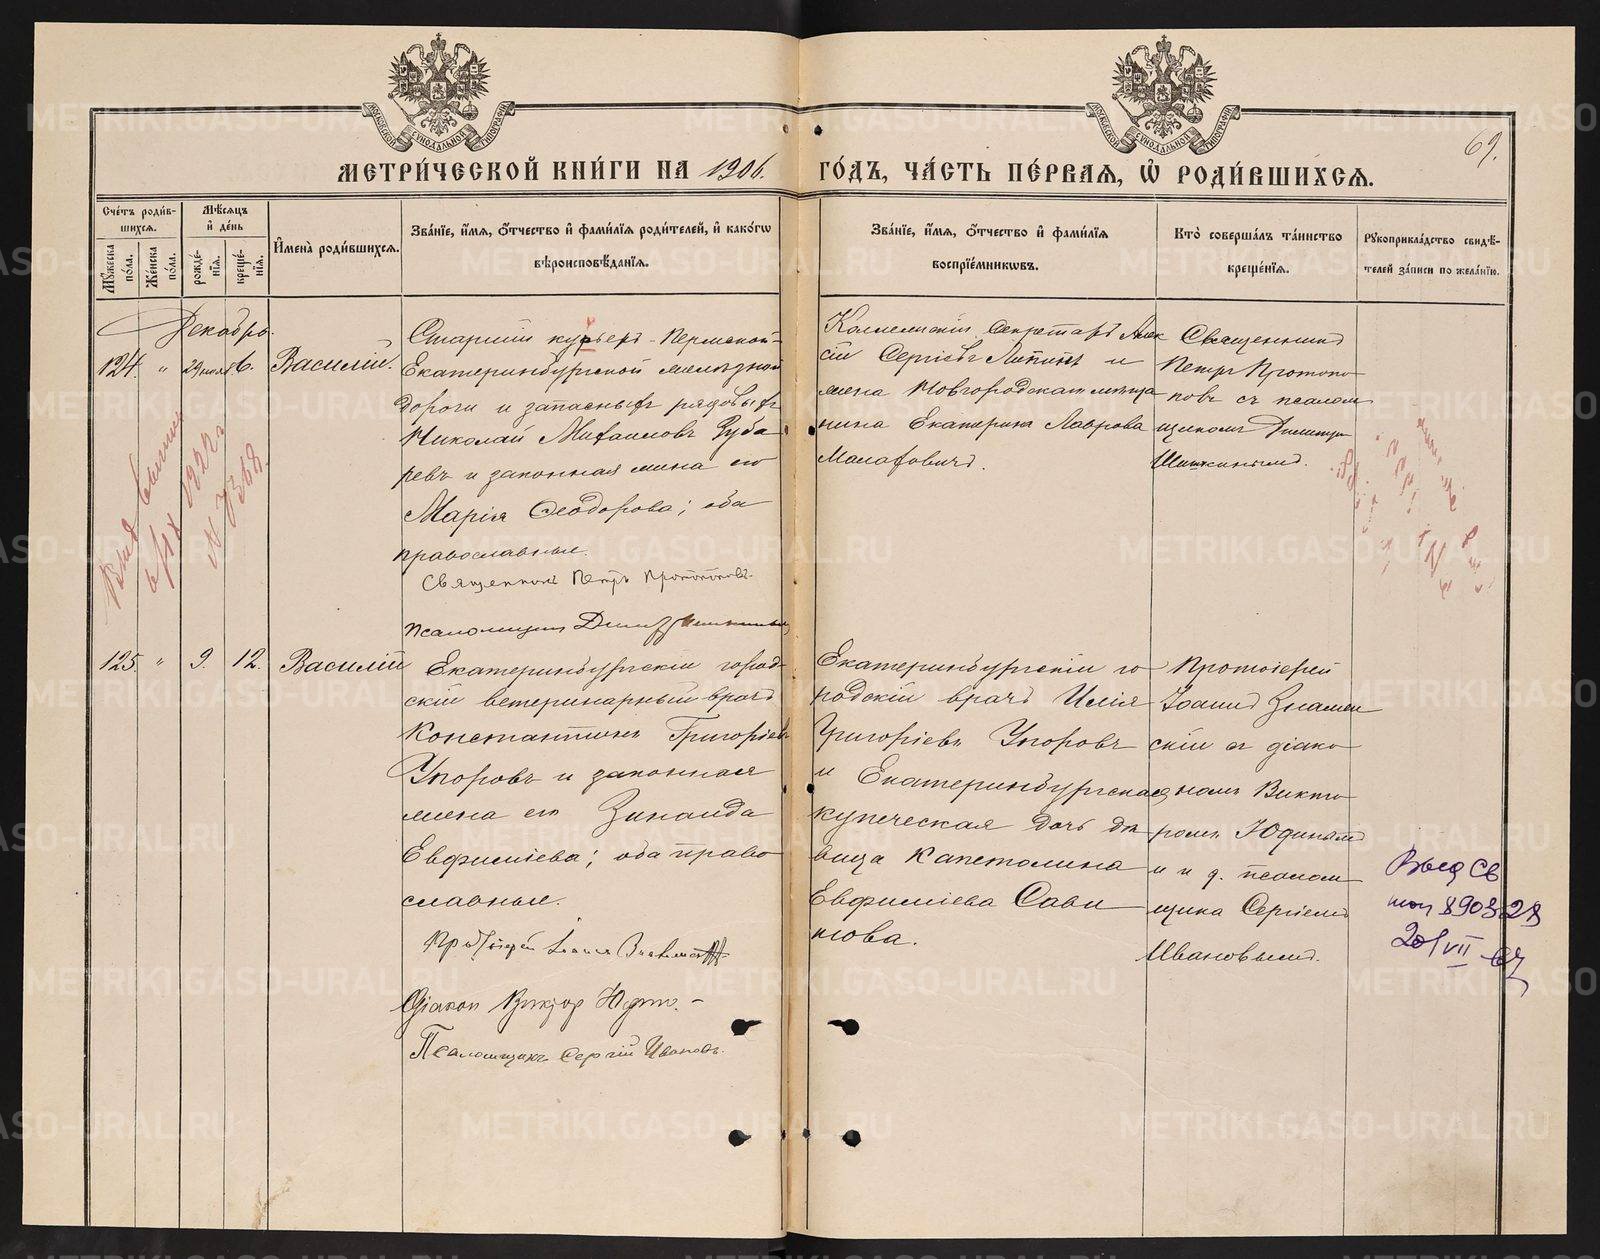 МЕТРИ́ЧЕСКОЙ КНИ́ГИ НА 1906. ГО́ДЪ, ЧА́СТЬ ПЕ́РВАѦ, Ѡ҆ РОДИ́ВШИХСѦ.
69.
Сче́тъ роди́в-
шихсѧ.
Мꙋ́жеска
по́ла.
Же́нска
по́ла.
Мѣ́сѧцъ
и҆ де́нь
рожде́-
нїѧ.
креще́-
нїѧ.
И҆мена̀ роди́вшихсѧ.
Зва́нїе, и҆́мѧ, ѻ҆́тчество и҆ фами́лїѧ роди́телей, и҆ како́гѡ
вѣроисповѣ́данїѧ.
Зва́нїе, и҆́мѧ, ѻ҆́тчество и҆ фами́лїѧ
воспрїе́мникѡвъ.
Кто̀ соверша́лъ та́инство
креще́нїѧ.
Рꙋкоприкла́дство свидѣ́-
телей за́писи по жела́нїю.
Декабрь.
124. " 29 ноября 6. Василій.
Старшій курьеръ Пермской-
Екатеринбургской желѣзной
дороги и запасный рядовый
Николай Михаиловъ Зуба
ревъ и законная жена его
Марія Ѳеодорова; оба
православные.
Священникъ Петръ Протопоповъ.
Псаломщикъ Димитрій Шишкинъ
Коллежскій Секретарь Алек
сій Сергіевъ Липинъ и
жена Новгородскаго мѣща
нина Екатерина Лаврова
Малафовичъ.
Священникъ
Петръ Протопо
повъ съ псалом
щикомъ Димитри
Шишкинымъ.
1922 г
N 7368.
125. " 9. 12. Василій
Екатеринбургскій город-
скій ветеринарный врачъ
Константинъ Григоріевъ
Упоровъ и законная
жена его Зинаида
Евфиміева; оба право
славные.
Діаконъ Викторъ Юдинъ. -
Псаломщикъ Сергій Ивановъ.
Екатеринбургскій го
родскій врачъ Илія
Григоріевъ Упоровъ
и Екатеринбургская
купеческая дочь дѣ
вица Капетолина
Евфиміева Сави
нова.
Протоіерей
Іоаннъ Знамен
скій съ діако
номъ Викто
ромъ Юдинымъ
и и. д. псалом
щика Сергіемъ
Ивановымъ.
Выд св
8903 28
20/VII
METRIKI.GASO-URAL.RU